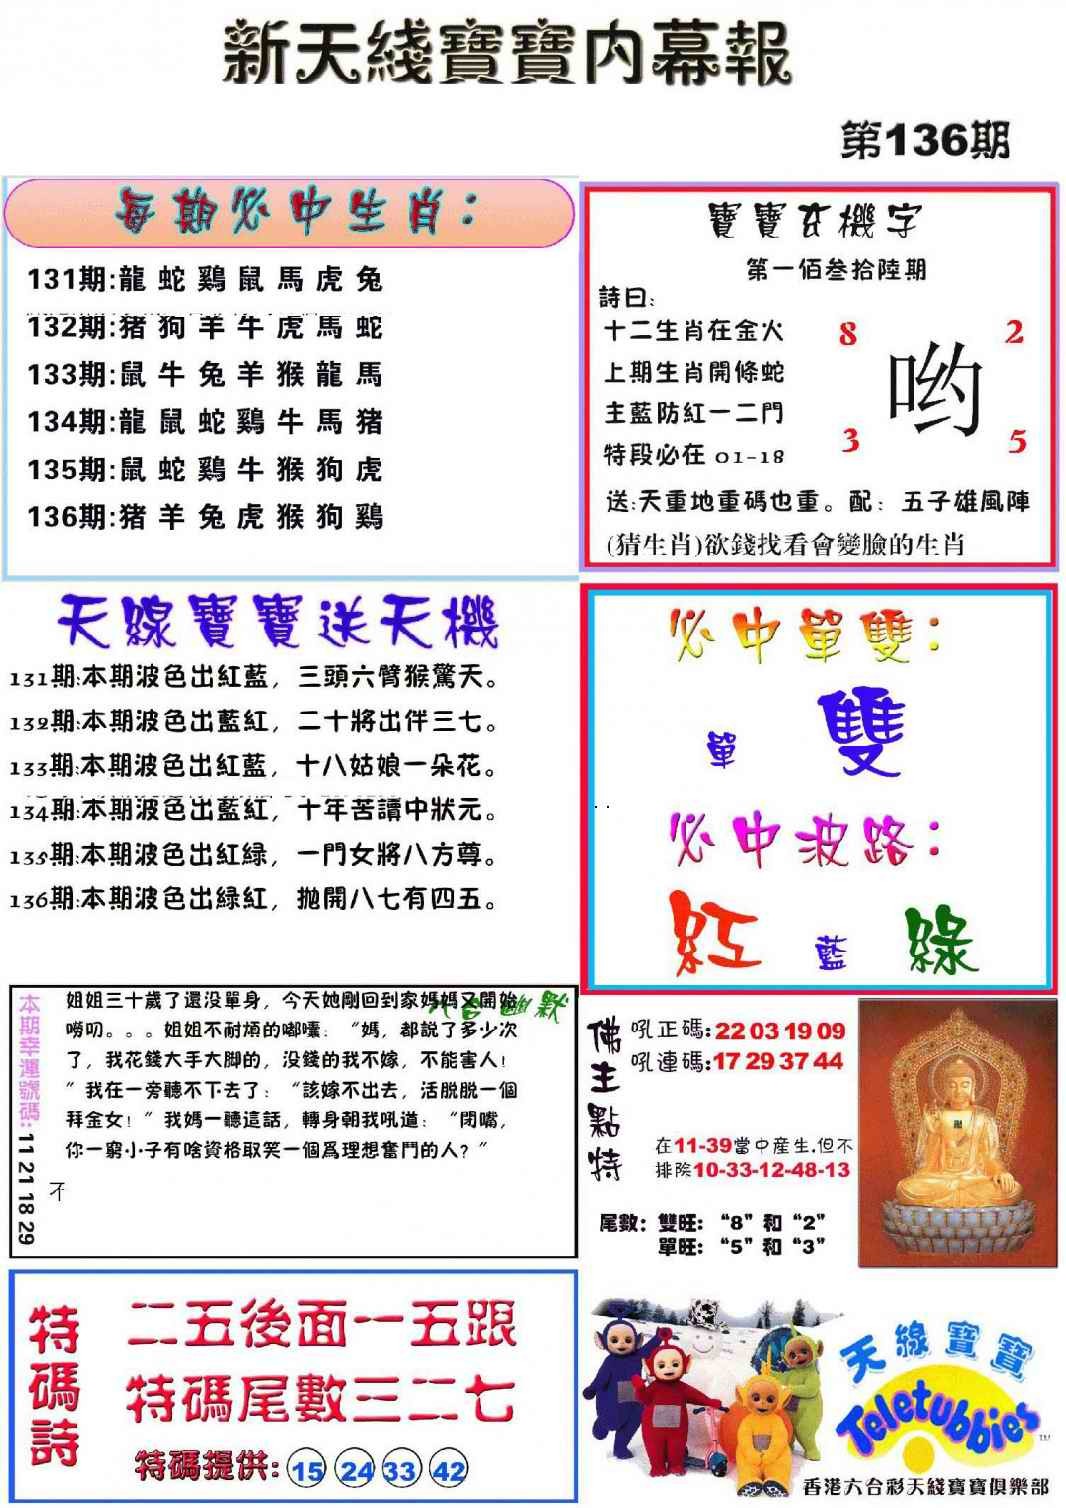 新天綫寶寶内幕報
第136期
每期必中生肖：
131期:龍 蛇 鷄 鼠 馬 虎 兔
132期:猪 狗 羊 牛 虎 馬 蛇
133期:鼠 牛 兔 羊 猴 龍 馬
134期:龍 鼠 蛇 鷄 牛 馬 猪
135期:鼠 蛇 鷄 牛 猴 狗 虎
136期:猪 羊 兔 虎 猴 狗 鷄
寶寶玄機字
第一佰叁拾陸期
詩曰:
十二生肖在金火
上期生肖開條蛇
主藍防紅一二門
特段必在 01-18
8 2
哟
3 5
送:天重地重碼也重。配：五子雄風陣
(猜生肖)欲錢找看會變臉的生肖
天線寶寶送天機
131期:本期波色出紅藍，三頭六臂猴驚天。
132期:本期波色出藍紅，二十將出伴三七。
133期:本期波色出紅藍，十八姑娘一朵花。
134期:本期波色出藍紅，十年苦讀中狀元。
135期:本期波色出紅緑，一門女將八方尊。
136期:本期波色出緑紅，抛開八七有四五。
必中單雙：
單 雙
必中波路：
紅 藍 綠
本期幸運號碼: 11 21 18 29
六合幽默
姐姐三十歲了還没單身，今天她剛回到家媽媽又開始
嘮叨。。。姐姐不耐煩的嘟囔：“媽，都説了多少次
了，我花錢大手大脚的，没錢的我不嫁，不能害人！
”我在一旁聽不下去了：“該嫁不出去，活脱脱一個
拜金女！”我媽一聽這話，轉身朝我吼道：“閉嘴，
你一窮小子有啥資格取笑一個爲理想奮鬥的人？”
不
佛主點特
吼正碼:22 03 19 09
吼連碼:17 29 37 44
在11-39當中産生.但不
排除10-33-12-48-13
尾數：雙旺：“8”和“2”
單旺：“5”和“3”
特碼詩
二五後面一五跟
特碼尾數三二七
特碼提供: 15 24 33 42
天線寶寶
Teletubbies
TM
香港六合彩天綫寶寶俱樂部